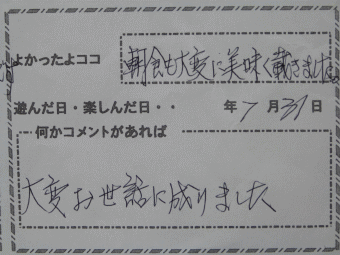 よかったよココ
朝食も大変に美味く戴きました。
遊んだ日・楽しんだ日・・ 年 7 月 31 日
何かコメントがあれば
大変お世話に成りました